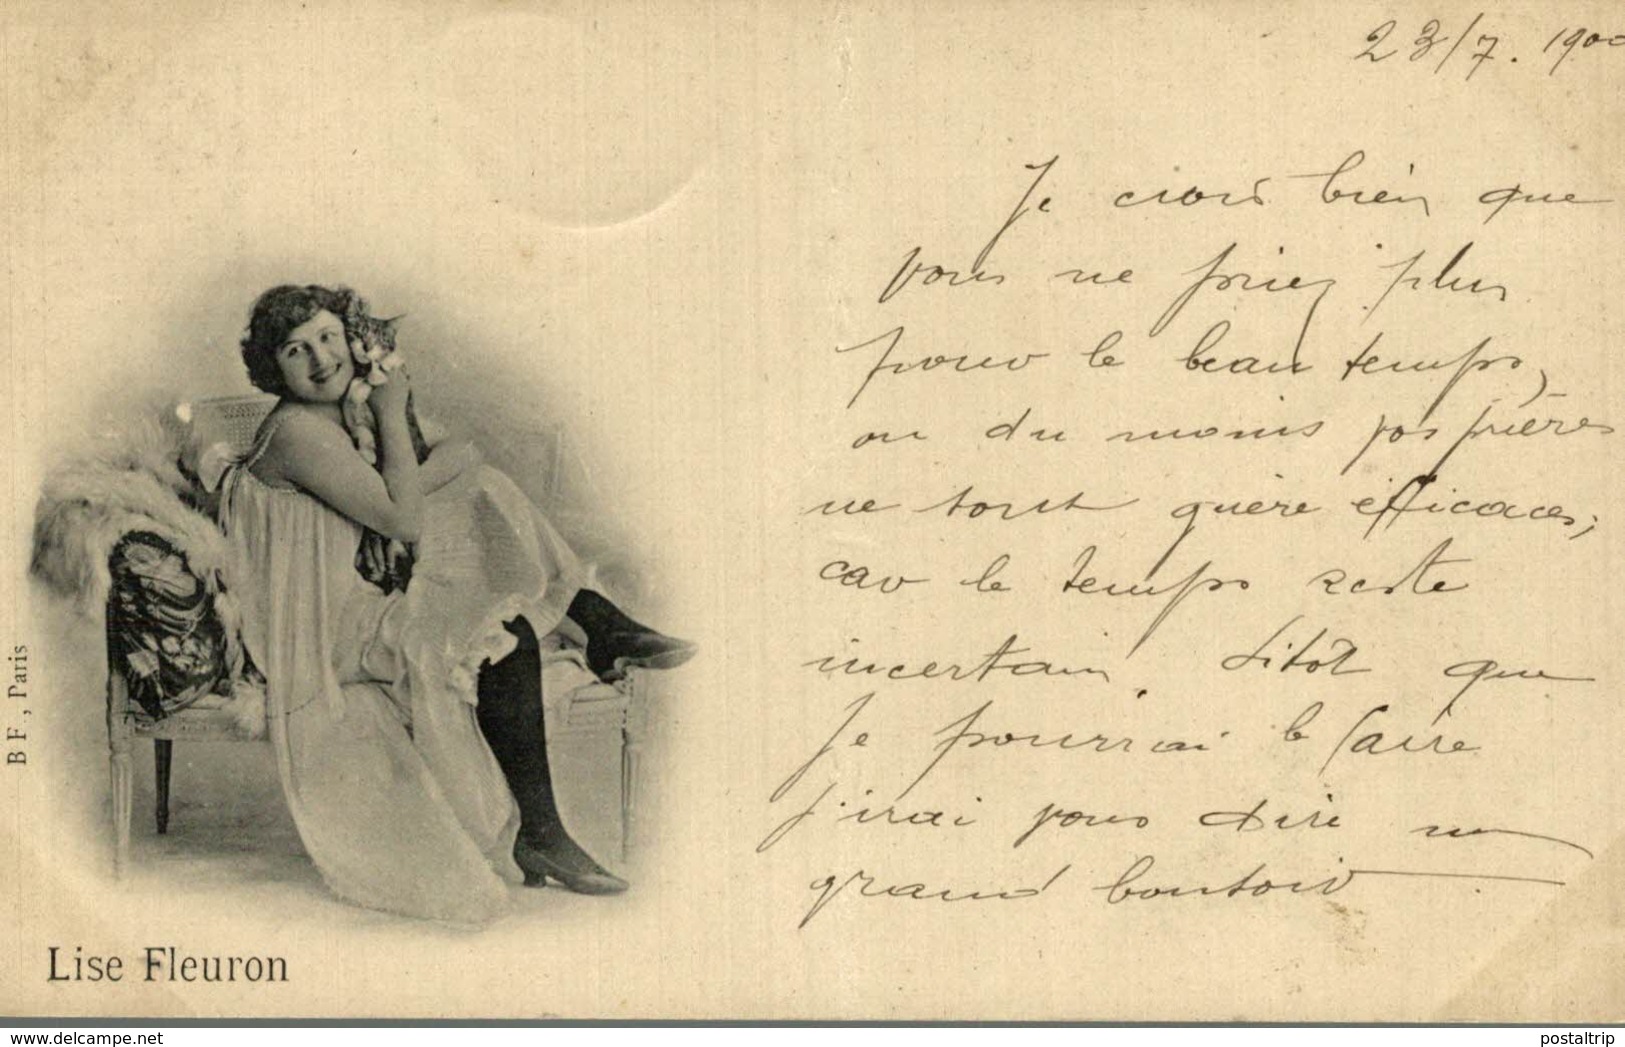 23/7. 1900
Je crois bien que
vous ne priez plus
pour le beau temps,
ou du moins vos prières
ne sont guère efficaces;
car le temps reste
incertain. Sitôt que
je pourrai le faire
j'irai vous dire un
grand bonsoir
B F, Paris
Lise Fleuron
delcampe.net
postaltrip